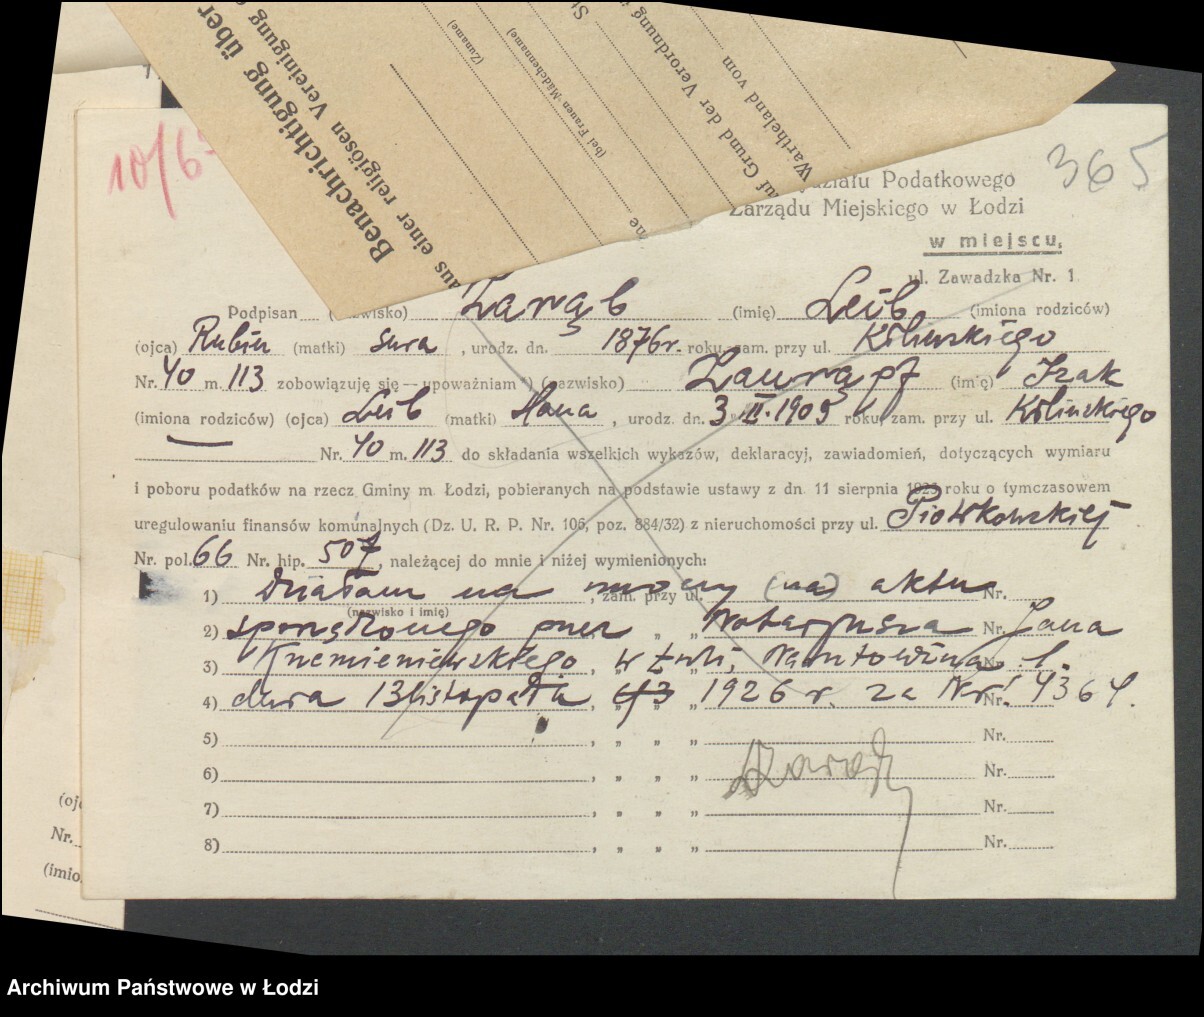 Benachrichtigung über
aus einer religiösen Vereinigung
(Zuname)
(bei Frauen Mädchenname)
auf Grund der Verordnung
Wartheland vom
10/6
365
Podatkowego
Zarządu Miejskiego w Łodzi
w miejscu,
ul. Zawadzka Nr. 1
Podpisan (nazwisko) (imię) Leib (imiona rodziców)
(ojca) Rubin (matki) Sura , urodz. dn. 1876 r. roku, zam. przy ul. Kilińskiego
Nr. 40 m. 113 zobowiązuję się — upoważniam *) (nazwisko) (imię) Izak
(imiona rodziców) (ojca) Leib (matki) Hana , urodz. dn. 3 II. 1905 roku, zam. przy ul. Kilińskiego
Nr. 40 m. 113 do składania wszelkich wykazów, deklaracyj, zawiadomień, dotyczących wymiaru
i poboru podatków na rzecz Gminy m. Łodzi, pobieranych na podstawie ustawy z dn. 11 sierpnia 1923 roku o tymczasowem
uregulowaniu finansów komunalnych (Dz. U. R. P. Nr. 106, poz. 884/32) z nieruchomości przy ul. Piotrkowskiej
Nr. pol. 66 Nr. hip. 507, należącej do mnie i niżej wymienionych:
1) Działam na mocy (na) aktu , zam. przy ul. Nr.
(nazwisko i imię)
2) sporządzonego przez „ „ Notarjusza Nr. Jana
3) Krzemieniewskiego , w Łodzi, Narutowicza Nr. 1.
4) dnia 13 listopada , „ „ 1926 r. za Nr. 4364. Nr.
5) , „ „ „ Nr.
6) , „ „ „ Nr.
7) , „ „ „ Nr.
8) , „ „ „ Nr.
Nr.
(imio
Archiwum Państwowe w Łodzi